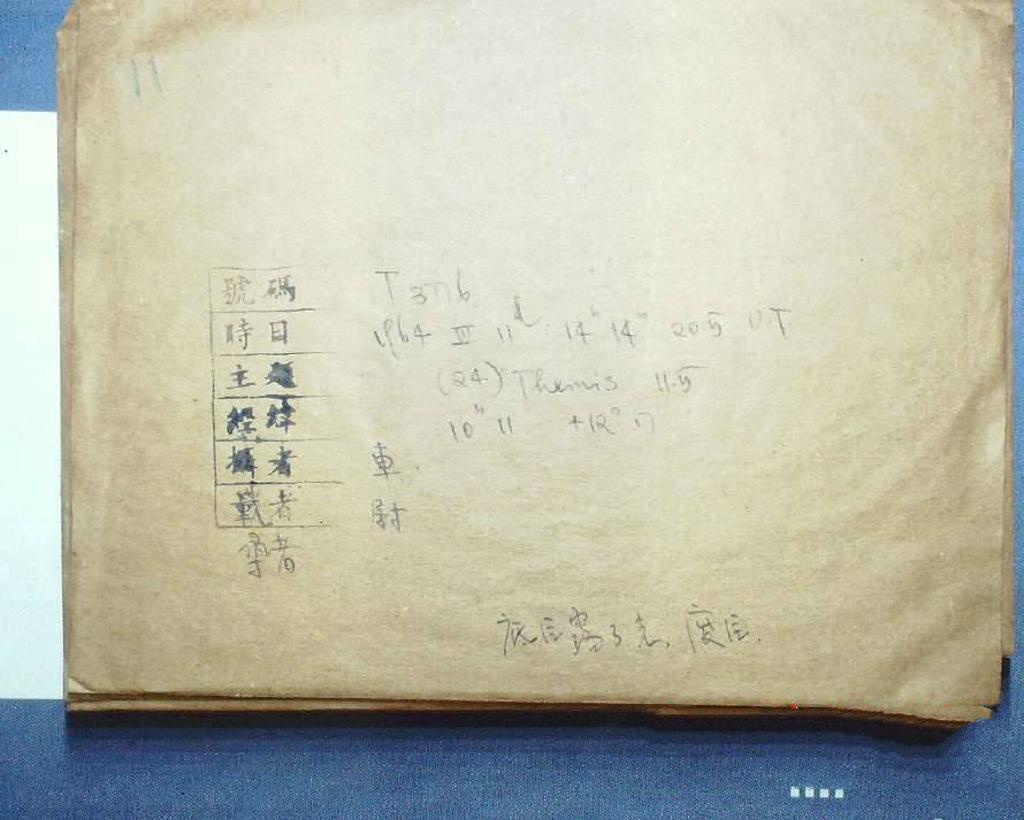 11
號碼 T 3776
時日 1964 III 11d 14h 14m 20.5 U.T
主題 (24) Themis 11.5
經緯 10h 11 +12° 17
攝者 車
戴者 尉
者
底片露了光